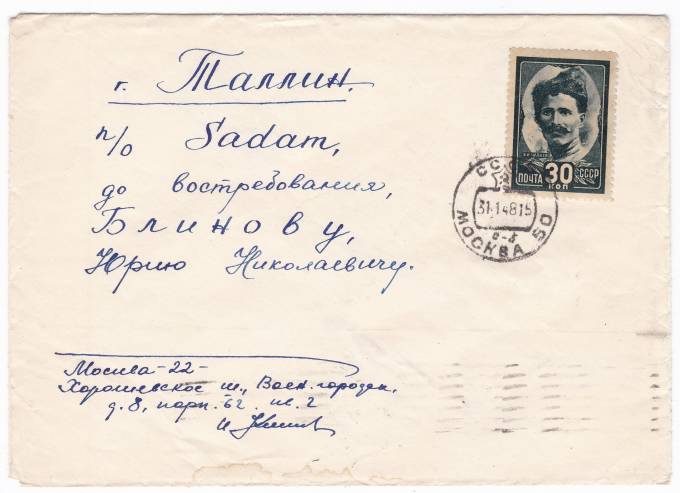 г. Таллин.
п/о Sadam,
до востребования,
Блинову,
Юрию Николаевичу.
ПОЧТА 30 СССР
КОП
31.1.48 15
МОСКВА 50
Москва-22-
Хорошевское ш., Воен. городок,
д. 8, корп. 62 кв. 2